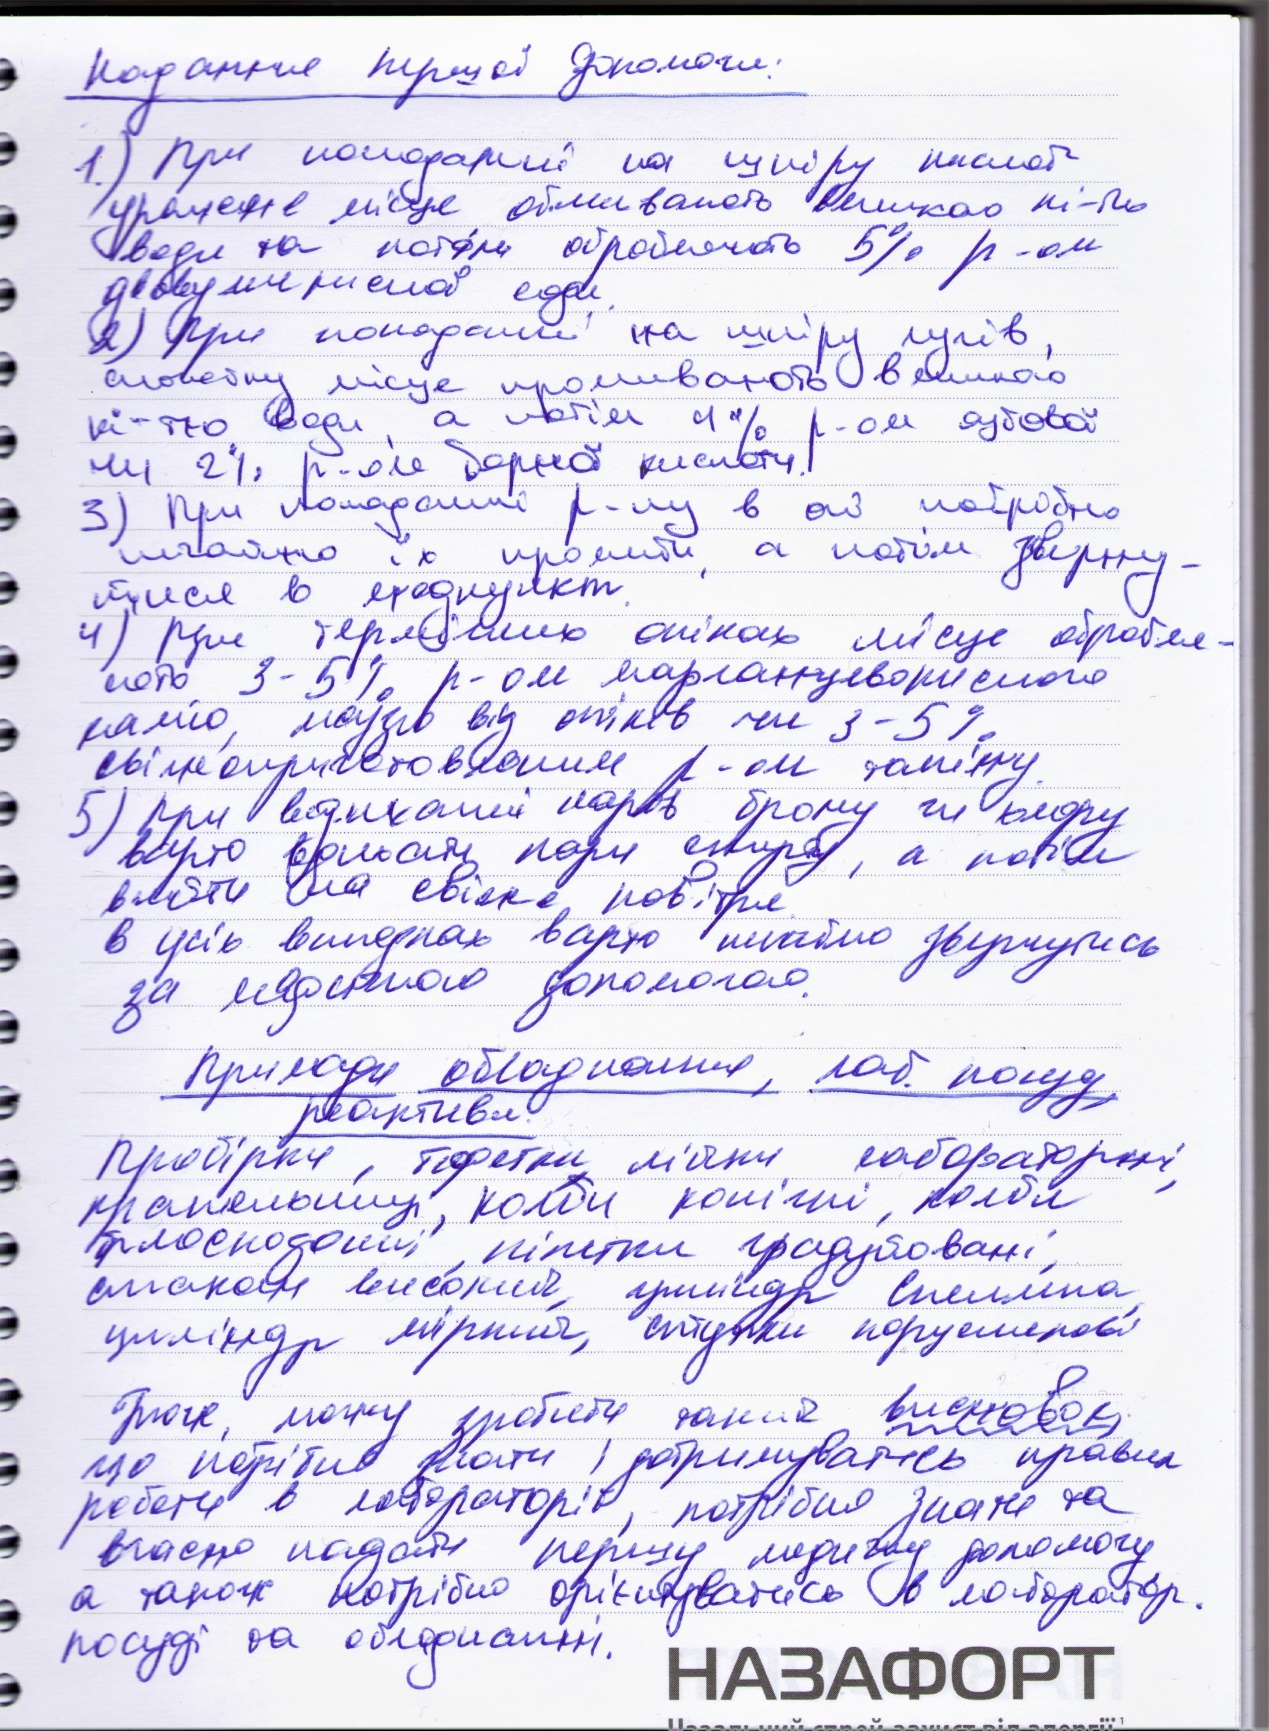 Надання першої допомоги:
1.) При попаданні на шкіру кислот
уражене місце обмивають великою кі-тю
води та потім обробляють 5% р-ом
двовуглекислої соди.
2) При попаданні на шкіру лугів,
спочатку місце промивають великою
кі-тю води, а потім 4% р-ом оцтової
чи 2% р-ом борної кислоти.
3) При попаданні р-ну в очі потрібно
негайно їх промити, а потім зверну-
тися в медпункт.
4) При термічних опіках місце обробля-
ють 3-5% р-ом марганцевокислого
калію, маззю від опіків чи 3-5%
свіжоприготовленим р-ом таніну.
5) При вдиханні парів брому чи хлору
варто вдихати пари спирту, а потім
вийти на свіже повітря.
в усіх випадках варто негайно звернутись
за медичною допомогою.
Прилади обладнання, лаб. посуд,
реактиви.
Пробірки, лійки лабораторні,
крапельниці, колби конічні, колби
плоскодонні, піпетки градуйовані,
стакан високий, циліндр
циліндр мірний, ступки порцелянові
Отже, можу зробити такий висновок,
що потрібно знати і дотримуватись правил
роботи в лабораторії, потрібно знати та
вчасно надати першу медичну допомогу
а також потрібно орієнтуватись в лаборатор.
посуді та обладнанні.
НАЗАФОРТ
Назальний спрей захист від алергії¹